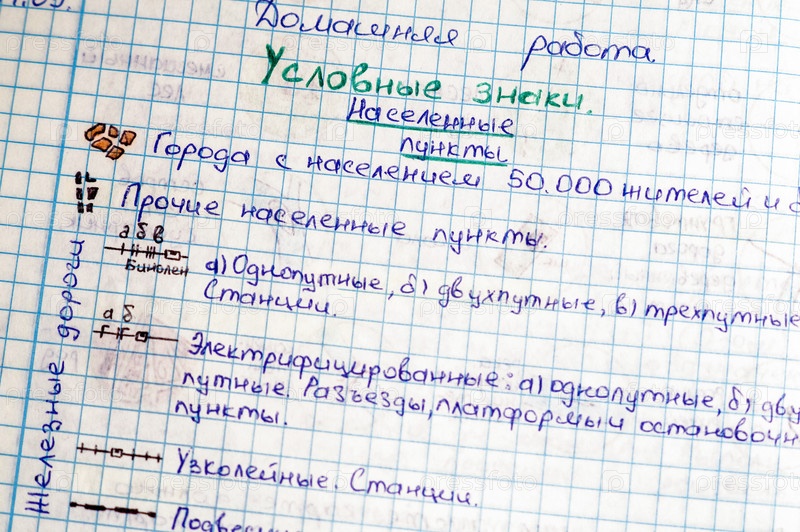 Домашняя работа.
Условные знаки.
Населенные
пункты
Города с населением 50.000 жителей и
Прочие населенные пункты.
а б в
а) Однопутные, б) двухпутные, в) трехпутные
Станции.
Железные дороги
а б
Электрифицированные: а) однопутные, б) дву
путные. Разъезды, платформы и остановочн
пункты.
Узколейные. Станции.